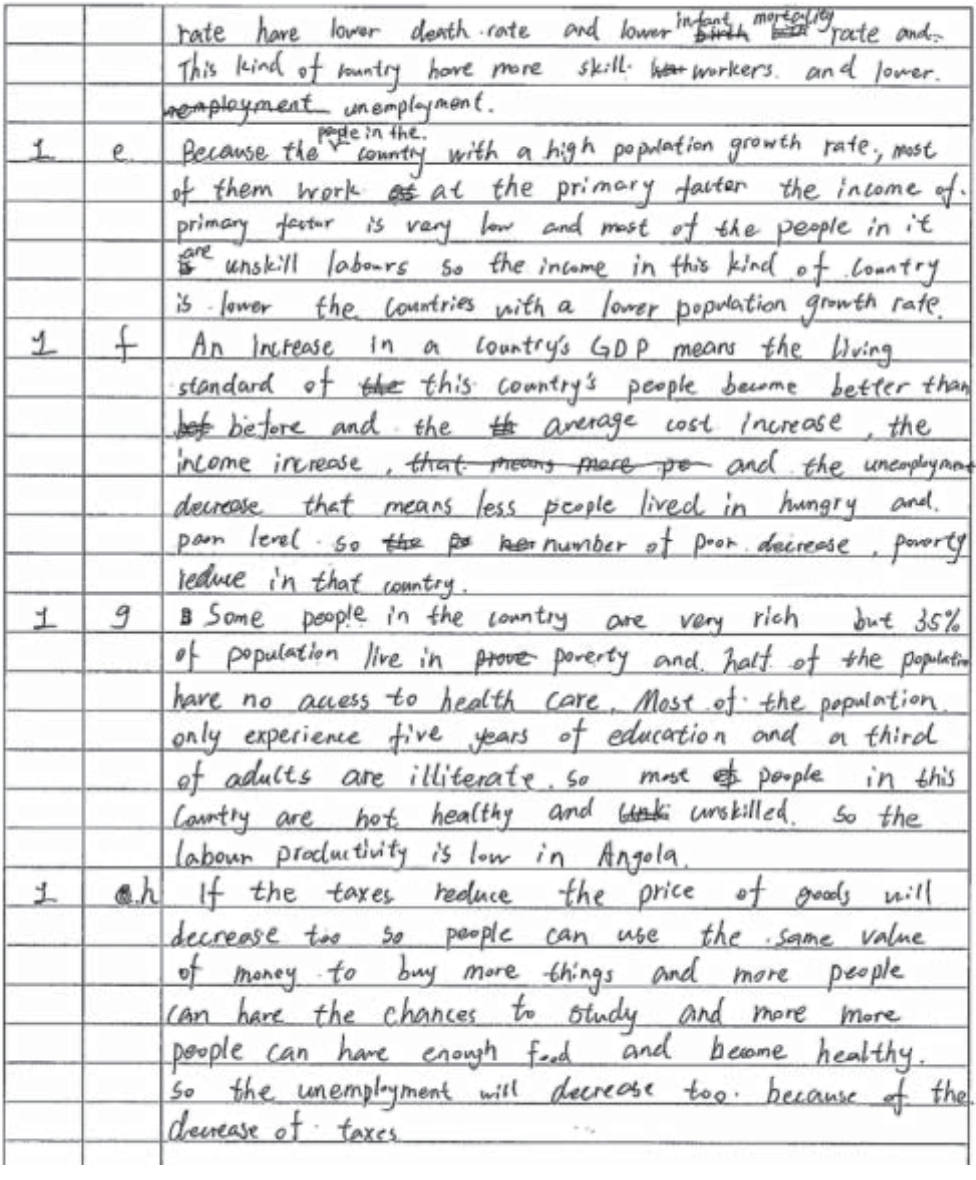 rate have lower death rate and lower infant mortality rate and.
This kind of country have more skill workers. and lower.
unemployment.
1 e Because the people in the country with a high population growth rate, most
of them work at the primary factor the income of.
primary factor is very low and most of the people in it
are unskill labours so the income in this kind of country
is lower the countries with a lower population growth rate.
1 f An Increase in a country's GDP means the living
standard of this country's people become better than
before and the average cost increase, the
income increase, and the unemployment
decrease that means less people lived in hungry and.
poor level so number of poor decrease, poverty
reduce in that country.
1 g Some people in the country are very rich but 35%
of population live in poverty and half of the population
have no access to health care. Most of the population
only experience five years of education and a third
of adults are illiterate. so most people in this
Country are not healthy and unskilled. So the
labour productivity is low in Angola.
1 h If the taxes reduce the price of goods will
decrease too so people can use the same value
of money to buy more things and more people
can have the chances to study and more more
people can have enough food and become healthy.
so the unemployment will decrease too. because of the
decrease of taxes